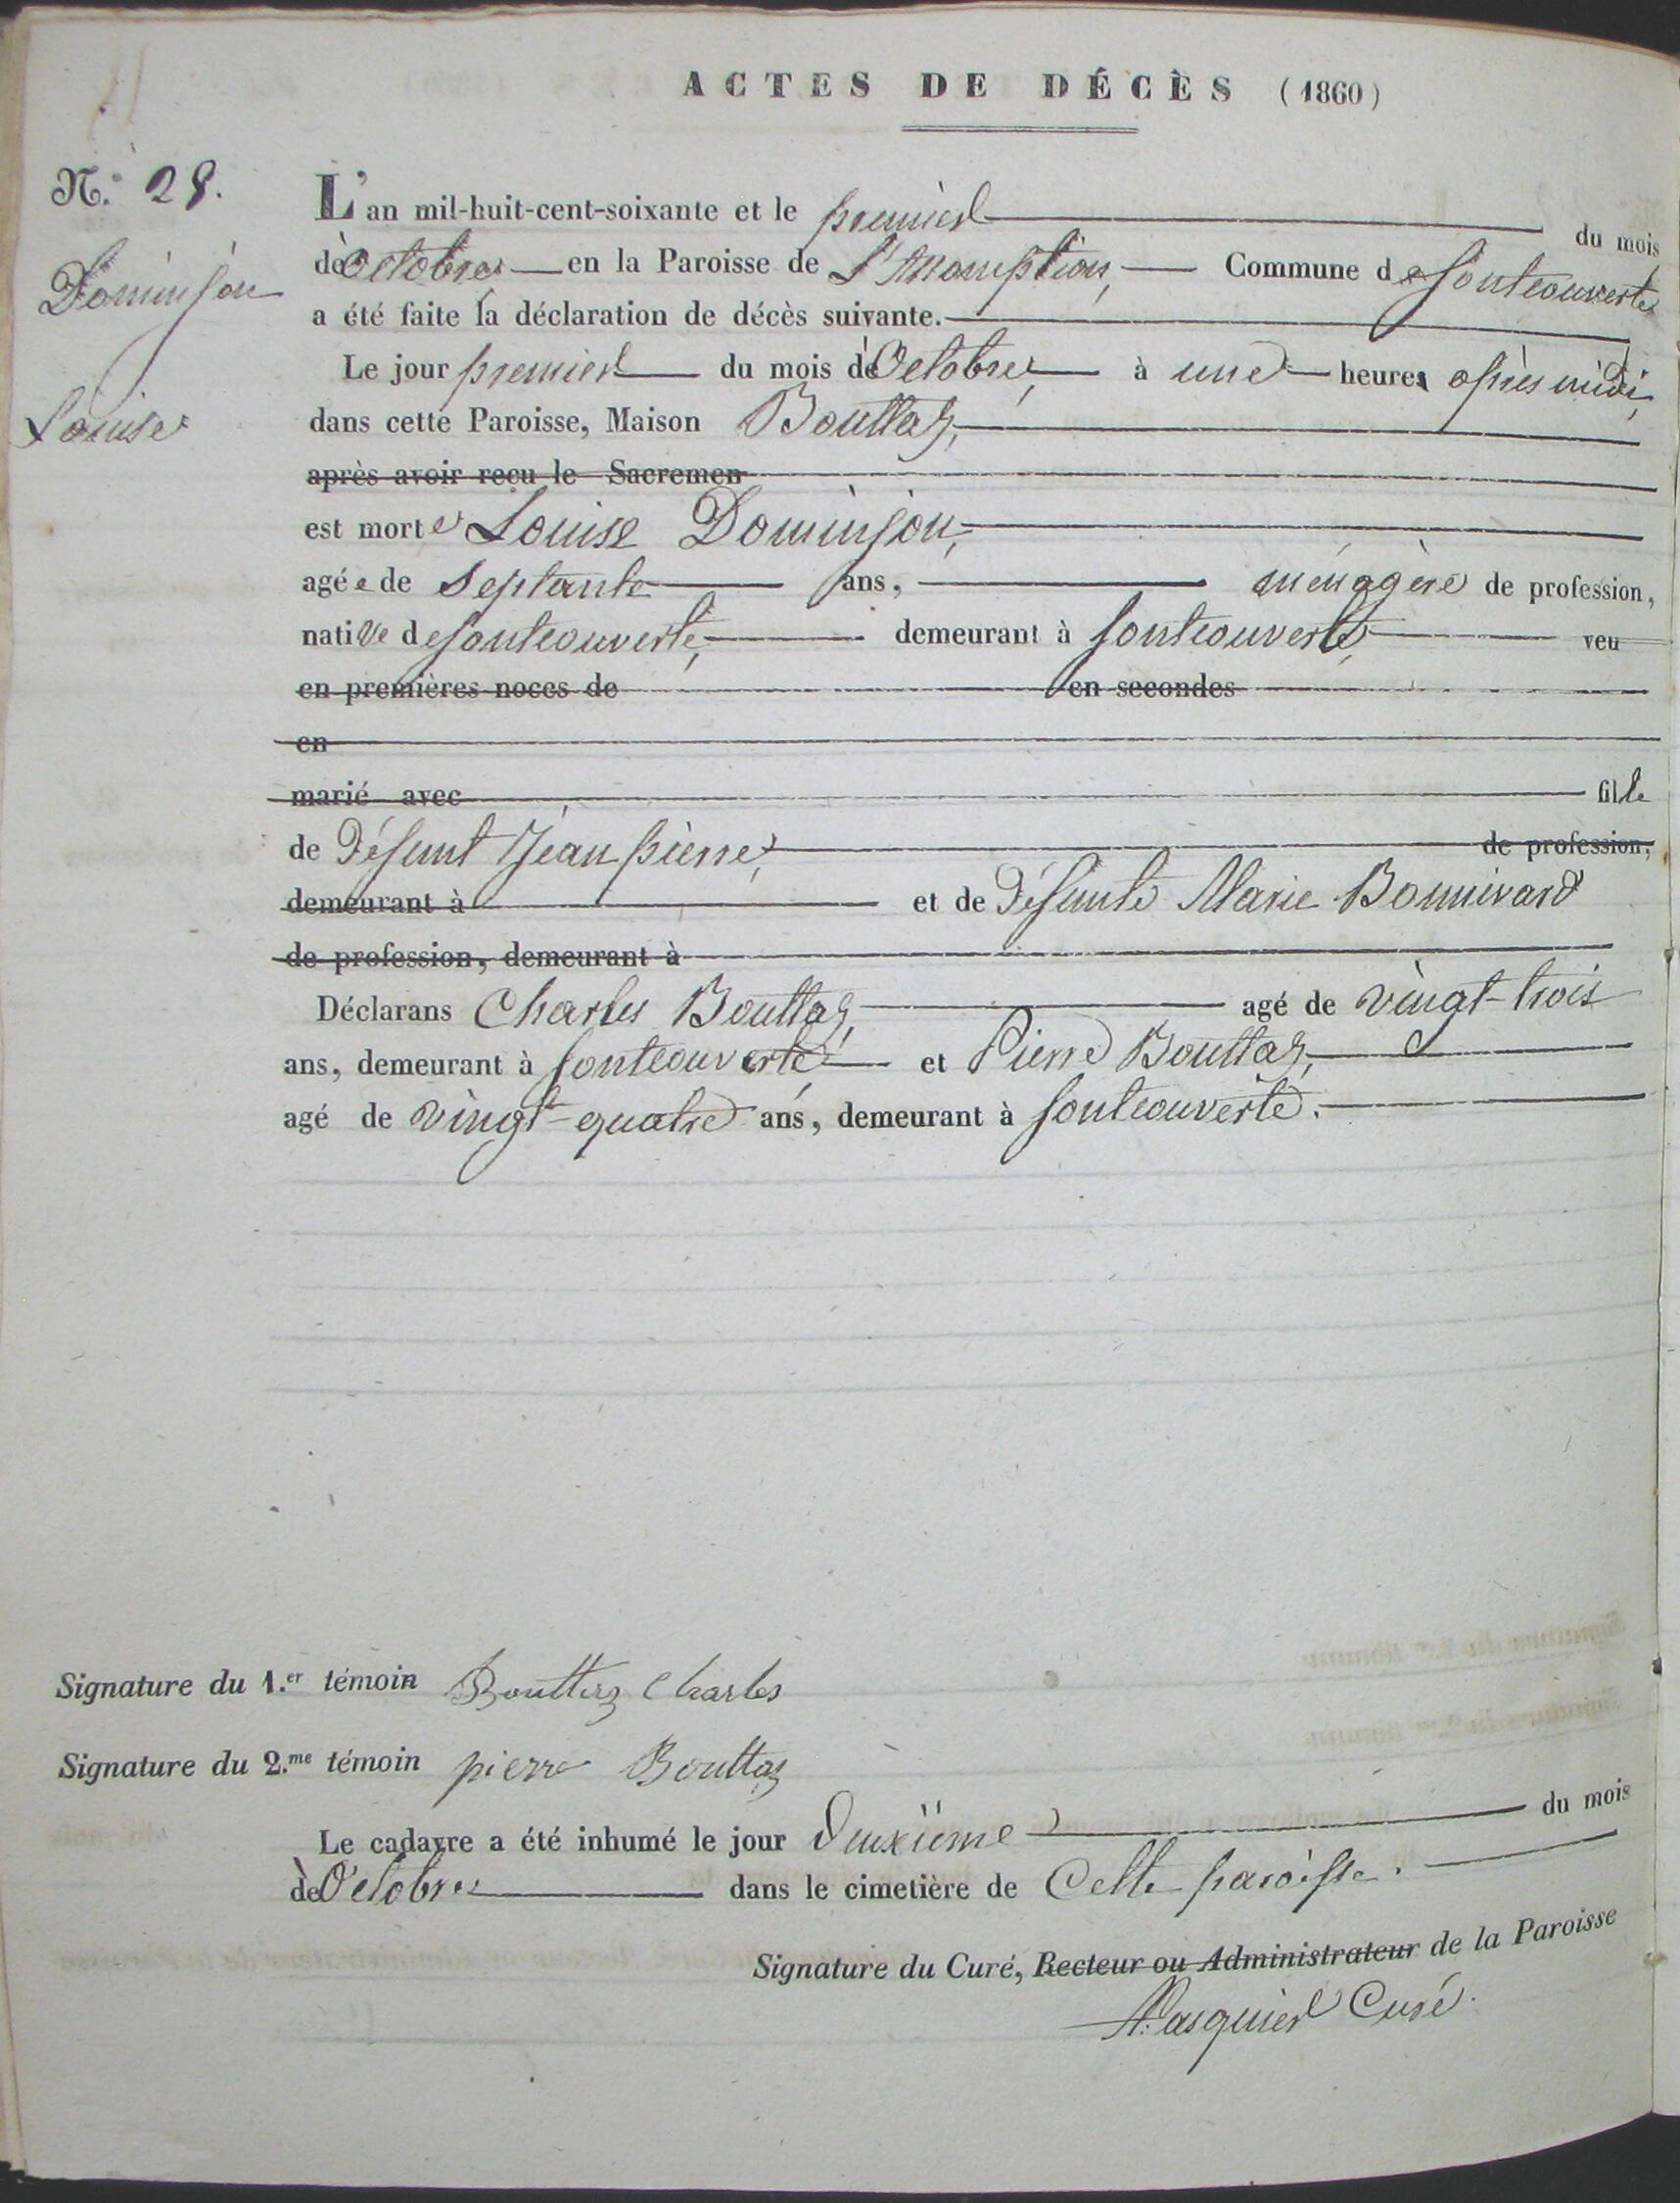 ACTES DE DÉCÈS (1860)
N.° 28.
Dominjon
Louise
L'an mil-huit-cent-soixante et le premier du mois
de Octobre en la Paroisse de L'Assomption, Commune de fontcouverte
a été faite la déclaration de décès suivante.
Le jour premier du mois de Octobre, à une heures après midi,
dans cette Paroisse, Maison Bouttaz,
après avoir reçu le Sacremen
est morte Louise Dominjon,
agée de Septante ans, ménagère de profession,
native de fontcouverte, demeurant à fontcouverte, veu
en premières noces de en secondes
en
marié avec fille
de Défunt Jean pierre, de profession,
demeurant à et de Défunte Marie Bonnivard
de profession, demeurant à
Déclarans Charles Bouttaz, agé de vingt-trois
ans, demeurant à fontcouverte et Pierre Bouttaz,
agé de vingt-quatre ans, demeurant à fontcouverte.
Signature du 1.er témoin Bouttaz Charles
Signature du 2.me témoin pierre Bouttaz
Le cadavre a été inhumé le jour Deuxième du mois
de Octobre dans le cimetière de Cette paroisse.
Signature du Curé, Recteur ou Administrateur de la Paroisse
Pasquier Curé.